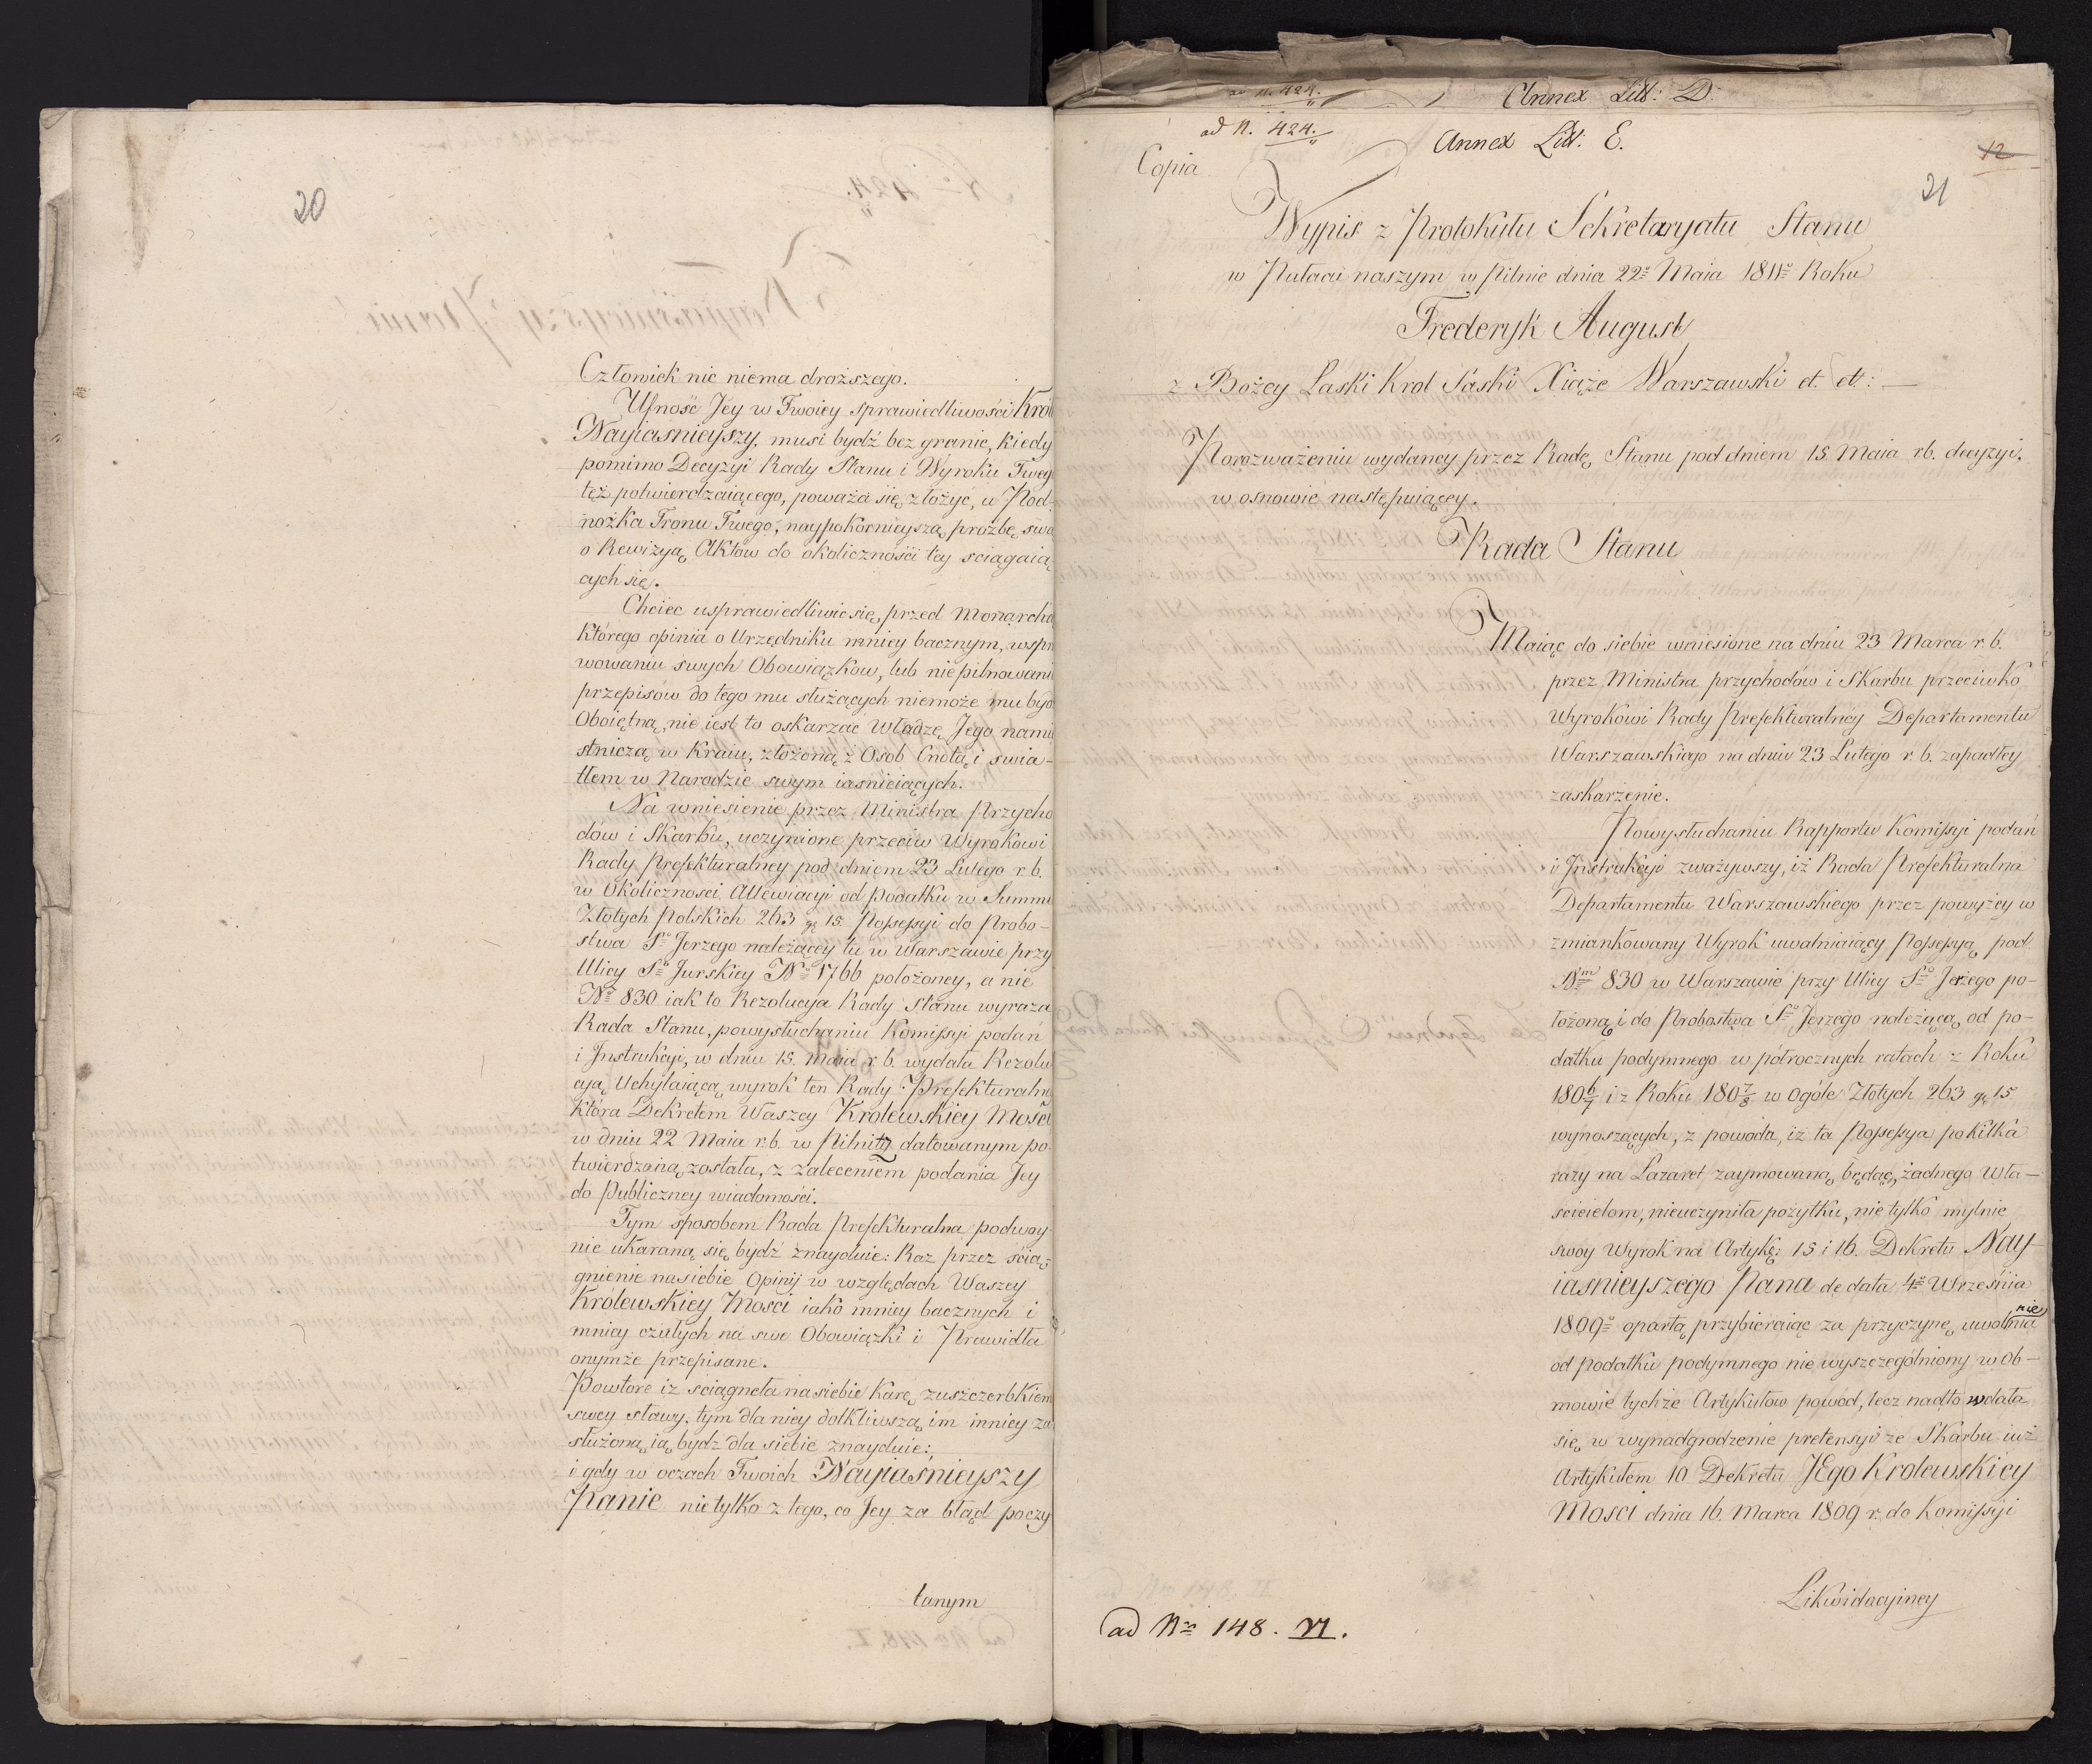 20
Człowiek nic niema droższego.
Ufność Jey w Twoiey sprawiedliwości Krol
Nayiasnieyszy, musi bydź bez granic, kiedy
pomimo Decyzyi Rady Stanu i Wyroku Tweg
też potwierdzaiącego, poważa się złożyć, u Pod-
nożka Tronu Twego, naypokornieyszą prozbę swą
o Rewizyą Aktów do okoliczności tey sciągaią
cych się.
Chcieć usprawiedliwić się przed Monarchą
którego opinia o Urzędniku mniey bacznym, w spra
wowaniu swych Obowiązkow, lub nie pilnowani
przepisów do tego mu służących niemoże mu bydź
Oboiętną, nie iest to oskarżac Władzę Jego nami
stniczą w Kraiu, złożoną z Osob Cnotą i swia-
tłem w Narodzie swym iasnieiących.
Na wniesienie przez Ministra Przycho
dow i Skarbu, uczynione przeciw Wyrokowi
Rady Prefekturalney pod dniem 23 Lutego r. b.
w Okoliczności Allewiacyi od podatku w Summi
Złotych Polskich 263 gr 15 Possessyi do Probo-
stwa Sgo Jerzego należącey tu w Warszawie przy
Ulicy Sto Jurskiey No 1766 położoney, a nie
No 830 iak to Rezolucya Rady Stanu wyraza
Rada Stanu, powysłuchaniu Komissyi podań
i Instrukcyi, w dniu 15. Maia r. b. wydała Rezolu
cyą Uchylaiącą wyrok ten Rady Prefekturalne
która Dekretem Waszey Krolewskiey Mości
w dniu 22 Maia r. b. w Pilnitz datowanym po
twierdzoną została, z zaleceniem podania Jey
do Publiczney wiadomości.
Tym sposobem Rada Prefekturalna podwoy
nie ukaraną się bydź znayduie: Raz przez ścią-
gnienie nasiebie Opinij w względach Waszey
Królewskiey Mosci iako mniey bacznych i
mniey czułych na swe Obowiązki i Prawidła
onymże przepisane.
Powtore iż sciągneła na siebie Karę, zuszczerbkiem
swey sławy, tym dla niey dotkliwszą im mniey za
służoną ią bydź dla siebie znayduie:
i gdy w oczach Twoich Nayiaśnieyszy
Panie nietylko z tego, co Jey za błąd poczy
tanym
Annex Litt: D.
ad N. 424.
Annex Litt: E.
12
21
Copia
Wypis z Protokułu Sekretaryatu Stanu
w Pałacu naszym w Pilnic dnia 22o Maia 1811o Roku
Frederyk August
z Bożey Łaski Krol Saski Xiąże Warszawski et. et:
Porozważeniu wydaney przez Radę Stanu pod dniem 15 Maia r b. decyzyi,
w osnowie następuiącey.
Rada Stanu
Maiąc do siebie wniesione na dniu 23 Marca r. b.
przez Ministra przychodów i Skarbu przeciwko
Wyrokowi Rady Prefekturalney Departamentu
Warszawskiego na dniu 23 Lutego r. b. zapadłey
zaskarżenie.
Powysłuchaniu Rapportu Komissyi podań
i Instrukcyi zważywszy, iż Rada Prefekturalna
Departamentu Warszawskiego przez powyżey w
zmiankowany Wyrok uwalniaiący Possessyą pod
Nm 830 w Warszawie przy Ulicy Sgo Jerzego po-
łożoną i do Probostwa Sgo Jerzego należącą od po-
datku podymnego w półrocznych ratach z Roku
1806/7 i z Roku 1807/8 w ogóle Złotych 263 gr 15
wynoszących, z powodu, iż ta Possessya pokilka
razy na Lazaret zaymowaną będąc, żadnego Wła-
scicielom, nieuczyniła pożytku, nie tylko mylnie
swoy Wyrok na Artykę: 15 i 16. Dekretu Nay-
iasnieyszego Pana de data 4o Września
1809o oparła przybieraiąc za przyczynę uwolnie
nia
od podatku podymnego nie wyszczególniony w ob-
mowie tychże Artykułow powód, lecz nadto wdała
się w wynadgrodzenie pretensyi ze Skarbu iuż
Artykułem 10 Dekretu JEgo Krolewskiey
Mosci dnia 16. Marca 1809 r. do Komissyi
Likwidacyiney
ad No 148. VI.